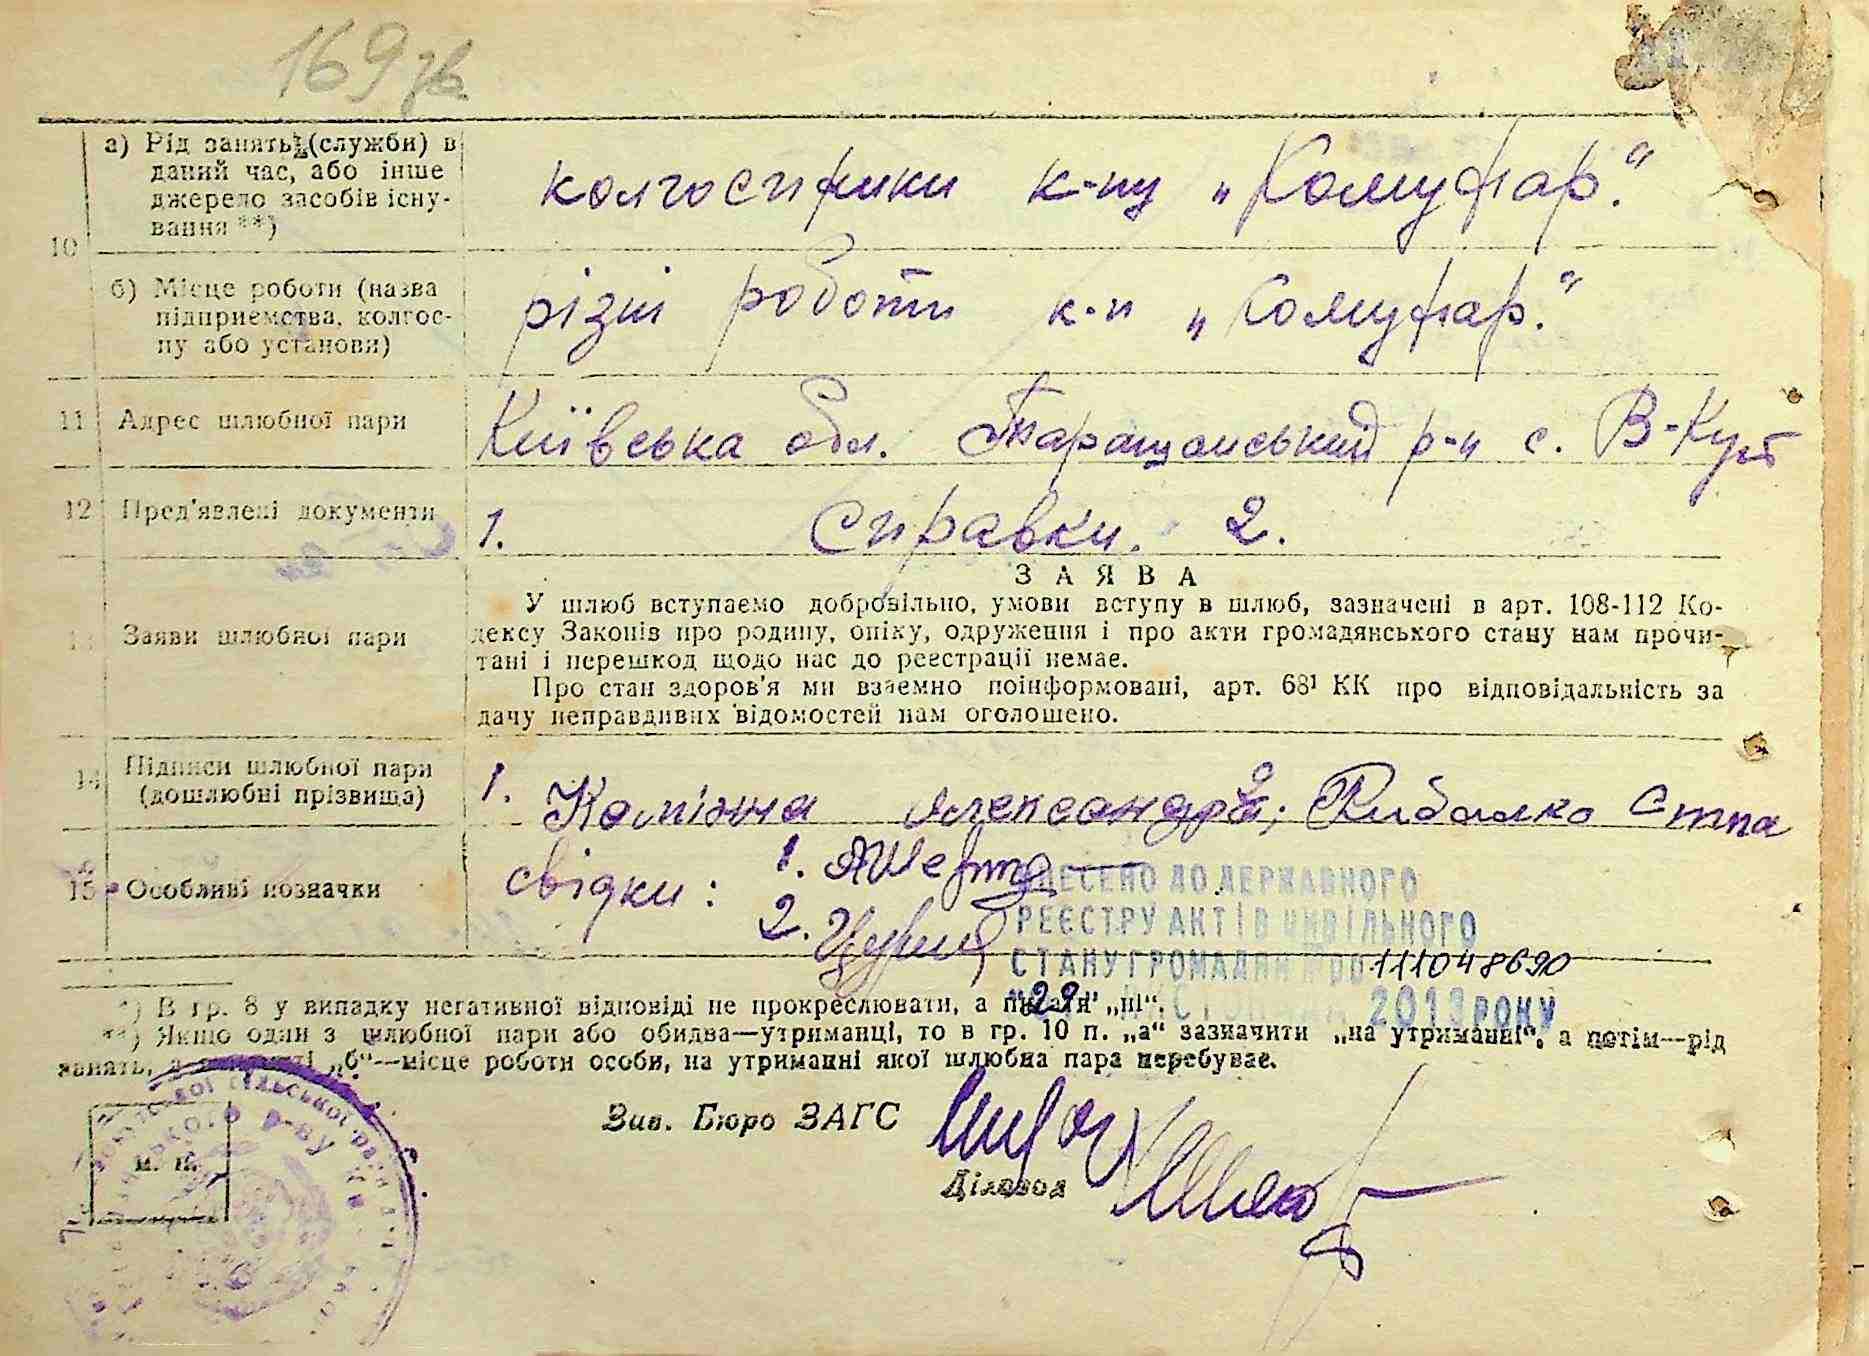 169 зв.
10
а) Рід занять (служби) в
даний час, або інше
джерело засобів існу-
вання **)
колгоспники к-пу „Комунар."
б) Місце роботи (назва
підприємства, колгос-
пу або установи)
різні роботи к-п „Комунар."
11 Адрес шлюбної пари
Київська обл. Таращанський р-н с. В-Кут
12 Пред'явлені документи
1. Справки. 2.
13 Заяви шлюбної пари
ЗАЯВА
У шлюб вступаємо добровільно, умови вступу в шлюб, зазначені в арт. 108-112 Ко-
дексу Законів про родину, опіку, одруження і про акти громадянського стану нам прочи-
тані і перешкод щодо нас до реєстрації немає.
Про стан здоров'я ми взаємно поінформовані, арт. 68¹ КК про відповідальність за
дачу неправдивих відомостей нам оголошено.
14 Підписи шлюбної пари
(дошлюбні прізвища)
1. Олександра; Рибалко
15 Особливі позначки
свідки: 1.
2.
ВНЕСЕНО ДО ДЕРЖАВНОГО
РЕЄСТРУ АКТІВ ЦИВІЛЬНОГО
СТАНУ ГРОМАДЯН ПРО 111048690
"29" ЛИСТОПАДА 2013 РОКУ
*) В гр. 8 у випадку негативної відповіді не прокреслювати, а писати „ні".
**) Якщо один з шлюбної пари або обидва—утриманці, то в гр. 10 п. „а" зазначити „на утриманні", а потім—рід
занять, а „б"—місце роботи особи, на утриманні якої шлюбна пара перебуває.
Зав. Бюро ЗАГС
Діловод
м. п.
сільської ради
р-ну